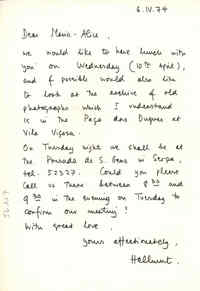 6.IV.74
Dear Maria-Alice,
we would like to have lunch with
you on Wednesday (10th April),
and if possible would also like
to look at the archive of old
photographs which I understand
is in the Paço dos Duques at
Vila Viçosa.
On Tuesday night we shall be at
the Pousada de S. Gens in Serpa,
tel. 52327. Could you please
call us there between 8 30 and
9 30 in the evening on Tuesday to
confirm our meeting?
With great love,
yours affectionately,
Hellmut.